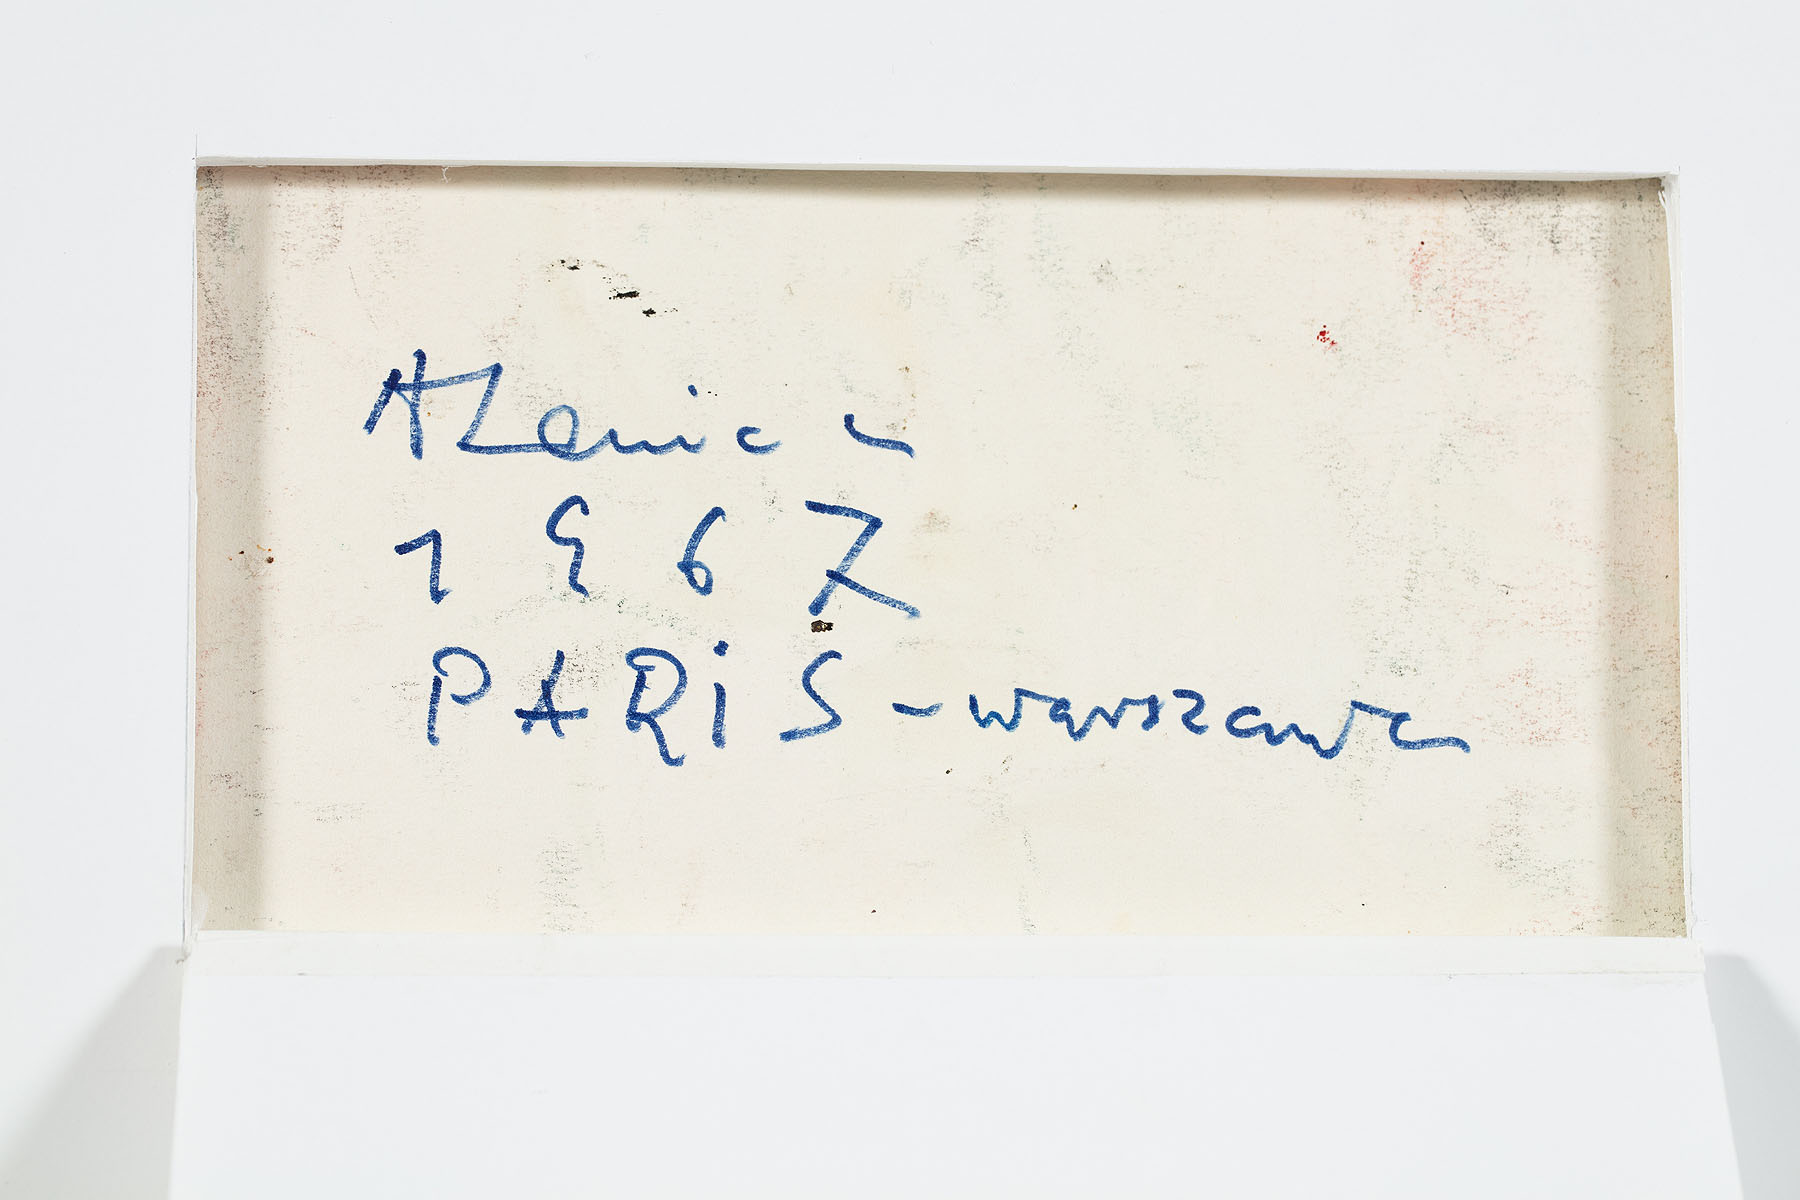 ALenica
1967
PARiS - warszawa